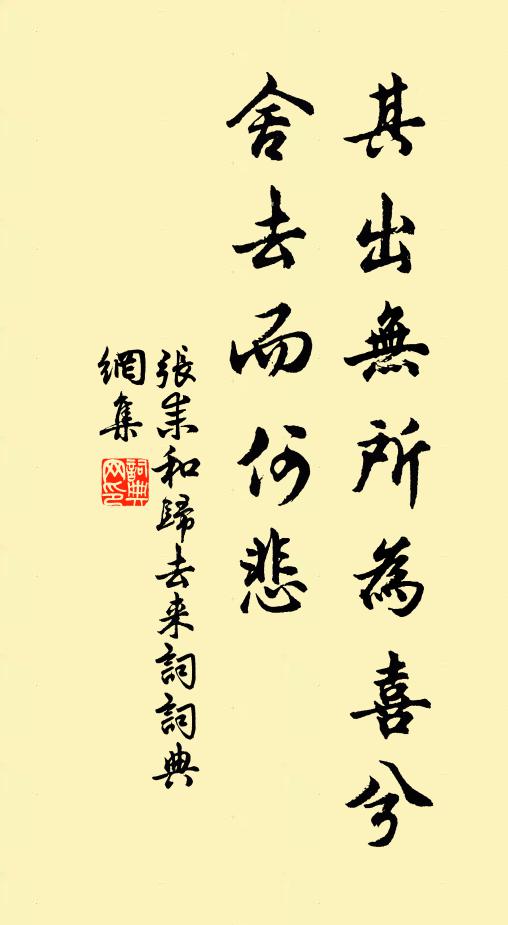 其出無所為喜兮
舍去而何悲
張耒和歸去来詞詞典
網集
詞典網印